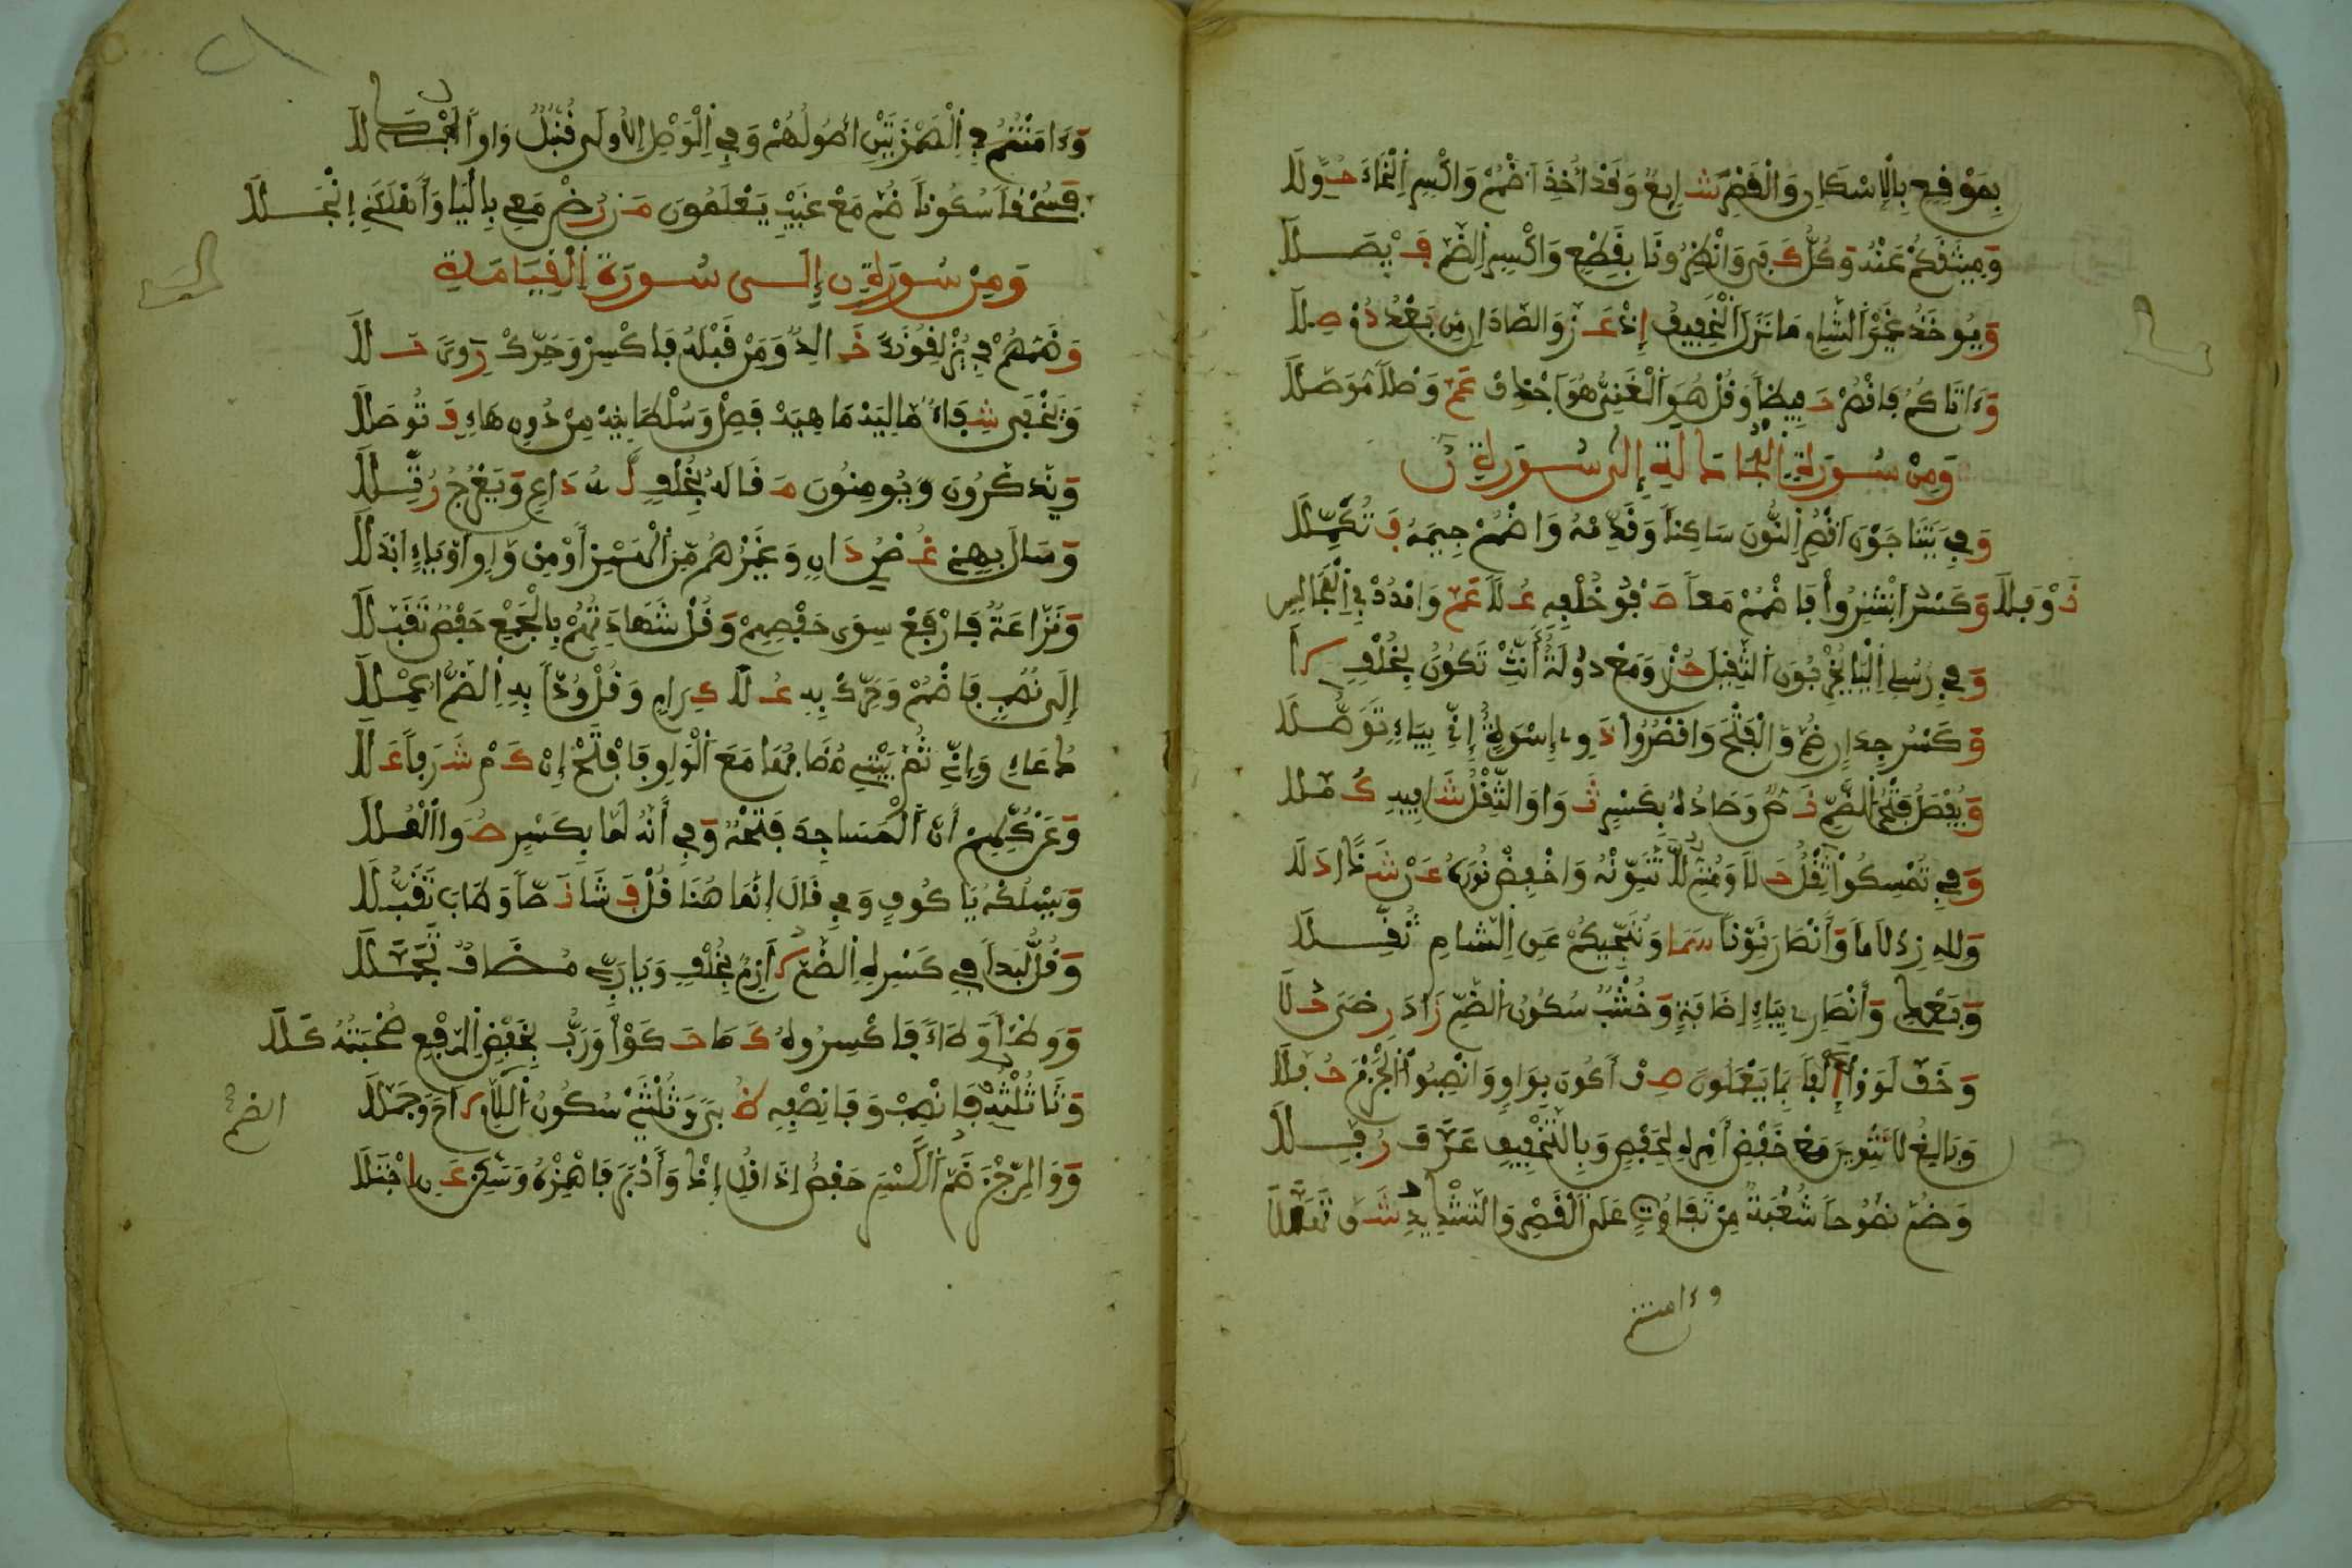 بِمَوْقِعِ بِالْإِسْكَانِ وَالْقَصْرِ شَائِعٌ وَقَدْ أَخَذَ اضْمُمْ وَاكْسِرِ الْخَاءَ حُوَّلَا
وَمِيثَاقَكُمْ عَنْهُ وَكُلٌّ كَفَى وَانْظِرُونَا بِقَطْعٍ وَاكْسِرِ الضَّمَّ فَيْصَلَا
وَيُوخَذُ غَيْرُ الشَّامِ مَا نَزَلَ الْخَفِيفُ إِذْ عَزَّ وَالصَّادَانِ مِنْ بَعْدُ دُمْ صِلَا
وَءَاتَاكُمُ فَاقْصُرْ حَفِيظاً وَقُلْ هُوَ الْغَنِيُّ هُوَ احْذِفْ عَمَّ وَصْلاً مُوَصَّلَا
وَمِنْ سُورَةِ الْمُجَادَلَةِ إِلَى سُورَةِ ن
وَفِي يَتَنَاجَوْنَ اقْصُرِ النُّونَ سَاكِناً وَقَدِّمْهُ وَاضْمُمْ جِيمَهُ فَتُكَمِّلَا
وَكَسْرَ انْشِزُوا فَاضْمُمْ مَعاً صَفْوَ خُلْفِهِ عُلاً عَمَّ وَامْدُدْ فِي الْمَجَالِسِ نَوْفَلَا
وَفِي رُسُلِي الْيَا يُخْرِبُونَ الثَّقِيلَ حُزْ وَمَعْ دُولَةً أَنِّثْ تَكُونُ بِخُلْفِ لَا
وَكَسْرَ جِدَارٍ ضُمَّ وَالْفَتْحَ وَاقْصُرُوا ذَوِي إِسْوَةٍ إِنِّي بِيَاءٍ تَوَصَّلَا
وَيُفْصَلُ فَتْحُ الضَّمِّ نَصٌّ وَصَادُهُ بِكَسْرٍ ثَوَى وَالثِّقْلُ شَافِيهِ كُمِّلَا
وَفِي تُمْسِكُوا ثِقْلٌ حَلَا وَمُتِمُّ لَا تُنَوِّنْهُ وَاخْفِضْ نُورَهُ عَنْ شَذاً دَلَا
وَلِلهِ زِدْ لَاماً وَأَنْصَارَ نَوِّناً سَمَا وَتُنَجِّيكُمْ عَنِ الشَّامِ ثُقِّلَا
وَبَعْدِي وَأَنْصَارِي بِيَاءِ إِضَافَةٍ وَخُشْبٌ سُكُونُ الضَّمِّ زَادَ رِضىً حَلَا
وَخَفَّ لَوَوْا إِلْفاً بِمَا يَعْمَلُونَ صِفْ أَكُونَ بِوَاوٍ وَانْصِبُوا الْجَزْمَ حُفَّلَا
وَبَالِغُ لَا تَنْوِينَ مَعْ خَفْضِ أَمْرِهِ لِحَفْصٍ وَبِالتَّخْفِيفِ عَرَّفَ رُفِّلَا
وَضَمَّ نَصُوحاً شُعْبَةٌ مِنْ تَفَوُّتٍ عَلَى الْقَصْرِ وَالتَّشْدِيدِ شَقَّ تَهَلُّلَا
وءامنتم
وَءَامَنْتُمُ فِي الْهَمْزَتَيْنِ أُصُولُهُمْ وَفِي الْوَصْلِ الْأُولَى قُنْبُلٌ وَاواً ابْدَلَا
فَسُحْقاً سُكُوناً ضُمَّ مَعْ غَيْبِ يَعْلَمُونَ مَنْ رُضْ مَعِي بِالْيَا وَأَهْلَكَنِي انْجَلَا
وَمِنْ سُورَةِ ن إِلَى سُورَةِ الْقِيَامَةِ
وَضَمُّهُمْ فِي يُزْلِقُونَكَ خَالِدٌ وَمَنْ قَبْلَهُ فَاكْسِرْ وَحَرِّكْ رِوىً حَلَا
وَيَخْفَى شِفَاءً مَالِيَهْ مَاهِيَهْ فَصِلْ وَسُلْطَانِيَهْ مِنْ دُونِ هَاءٍ فَتُوصَلَا
وَيَذَّكَّرُونَ وَيُومِنُونَ مَقَالُهُ بِخُلْفٍ لَهُ دَاعٍ وَيَعْرُجُ رُتِّلَا
وَسَالَ بِهَمْزٍ غُصْنُ دَانٍ وَغَيْرُهُمْ مِنَ الْهَمْزِ أَوْ مِنْ وَاوٍ اَوْ يَاءٍ ابْدَلَا
وَنَزَّاعَةٌ فَارْفَعْ سِوَى حَفْصِهِمْ وَقُلْ شَهَادَتِهِمْ بِالْجَمْعِ حَفْصٌ تَقَبَّلَا
إِلَى نُصُبٍ فَاضْمُمْ وَحَرِّكْ بِهِ عُلَا كِرَامٍ وَقُلْ وُدّاً بِهِ الضَّمُّ أُعْمِلَا
دُعَاءِي وَإِنِّي ثُمَّ بَيْتِي مُضَافُهَا مَعَ الْوَاوِ فَافْتَحْ إِنَّ كَمْ شَرَفاً عَلَا
وَعَنْ كُلِّهِمْ أَنَّ الْمَسَاجِدَ فَتْحُهُ وَفِي أَنَّهُ لَمَّا بِكَسْرٍ صُوَا الْعُلَا
وَيَسْلُكْهُ يَا كُوفٍ وَفِي قَالَ إِنَّمَا هُنَا قُلْ فَشَا نَصّاً وَطَابَ تَقَبُّلَا
وَقُلْ لُبَداً فِي كَسْرِهِ الضَّمُّ لَازِمٌ بِخُلْفٍ وَيَا رَبِّي مُضَافٌ تَجَمَّلَا
وَوَطْئاً وِطَاءً فَاكْسِرُوهُ كَمَا حَكَوْا وَرَبُّ بِخَفْضِ الرَّفْعِ صُحْبَتُهُ كَلَا
وَثَا ثُلْثِهِ فَانْصِبْ وَفَا نِصْفِهِ ظُبىً وَثُلْثَيْ سُكُونُ الضَّمِّ لَاحَ وَجَمَّلَا
الضم
وَوَالرِّجْزَ ضَمَّ الْكَسْرَ حَفْصٌ إِذَا قُلِ إِذْ وَأَدْبَرَ فَاهْمِزْهُ وَسَكِّنْ عَنِ اجْتِلَا